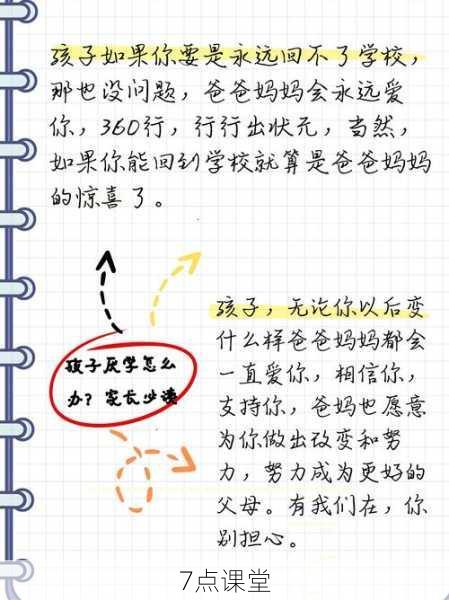 孩子如果你要是永远回不了学校，
那也没问题，爸爸妈妈会永远爱
你，360行，行行出状元，当然，
如果你能回到学校就算是爸爸妈妈
的惊喜了。
孩子厌学怎么
办？家长必读
孩子，无论你以后变
什么样爸爸妈妈都会
一直爱你，相信你，
支持你，爸妈也愿意
为你做出改变和努
力，努力成为更好的
父母。有我们在，你
别担心。
7点课堂